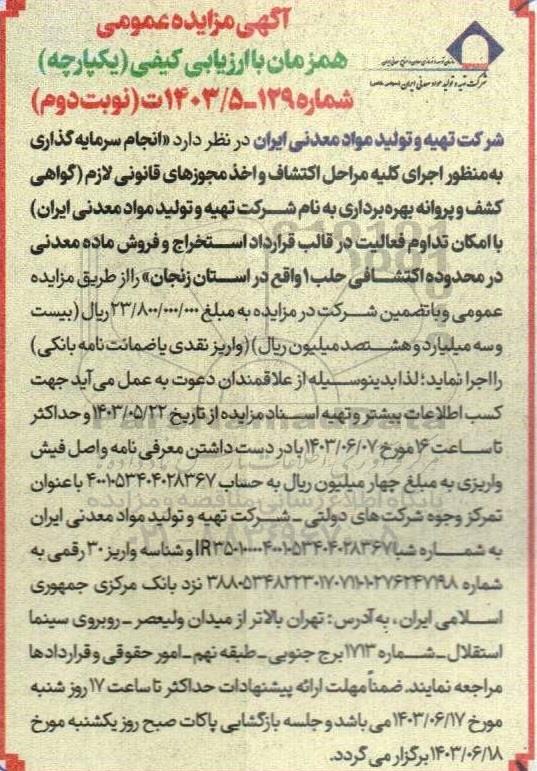 آگهی مزایده عمومی
همزمان با ارزیابی کیفی (یکپارچه)
شماره ۱۲۹ـ۱۴۰۳/۵ت (نوبت دوم)
شرکت تهیه و تولید مواد معدنی ایران
شرکت تهیه و تولید مواد معدنی ایران در نظر دارد «انجام سرمایه گذاری
به منظور اجرای کلیه مراحل اکتشاف و اخذ مجوزهای قانونی لازم (گواهی
کشف و پروانه بهره برداری به نام شرکت تهیه و تولید مواد معدنی ایران)
با امکان تداوم فعالیت در قالب قرارداد استخراج و فروش ماده معدنی
در محدوده اکتشافی حلب ۱ واقع در استان زنجان» را از طریق مزایده
عمومی و با تضمین شرکت در مزایده به مبلغ ۲۳/۸۰۰/۰۰۰/۰۰۰ ریال (بیست
و سه میلیارد و هشتصد میلیون ریال) (واریز نقدی یا ضمانت نامه بانکی)
را اجرا نماید؛ لذا بدینوسیله از علاقمندان دعوت به عمل می آید جهت
کسب اطلاعات بیشتر و تهیه اسناد مزایده از تاریخ ۱۴۰۳/۰۵/۲۲ و حداکثر
تا ساعت ۱۶ مورخ ۱۴۰۳/۰۶/۰۷ با در دست داشتن معرفی نامه و اصل فیش
واریزی به مبلغ چهار میلیون ریال به حساب ۴۰۰۱۰۵۳۴۰۴۰۲۸۳۶۷ با عنوان
تمرکز وجوه شرکت های دولتی ـ شرکت تهیه و تولید مواد معدنی ایران
به شماره شبا و شناسه واریز ۳۰ رقمی به
شماره نزد بانک مرکزی جمهوری
اسلامی ایران، به آدرس: تهران بالاتر از میدان ولیعصر ـ روبروی سینما
استقلال ـ شماره ۱۷۱۳ برج جنوبی ـ طبقه نهم ـ امور حقوقی و قراردادها
مراجعه نمایند. ضمناً مهلت ارائه پیشنهادات حداکثر تا ساعت ۱۷ روز شنبه
مورخ ۱۴۰۳/۰۶/۱۷ می باشد و جلسه بازگشایی پاکات صبح روز یکشنبه مورخ
۱۴۰۳/۰۶/۱۸ برگزار می گردد.